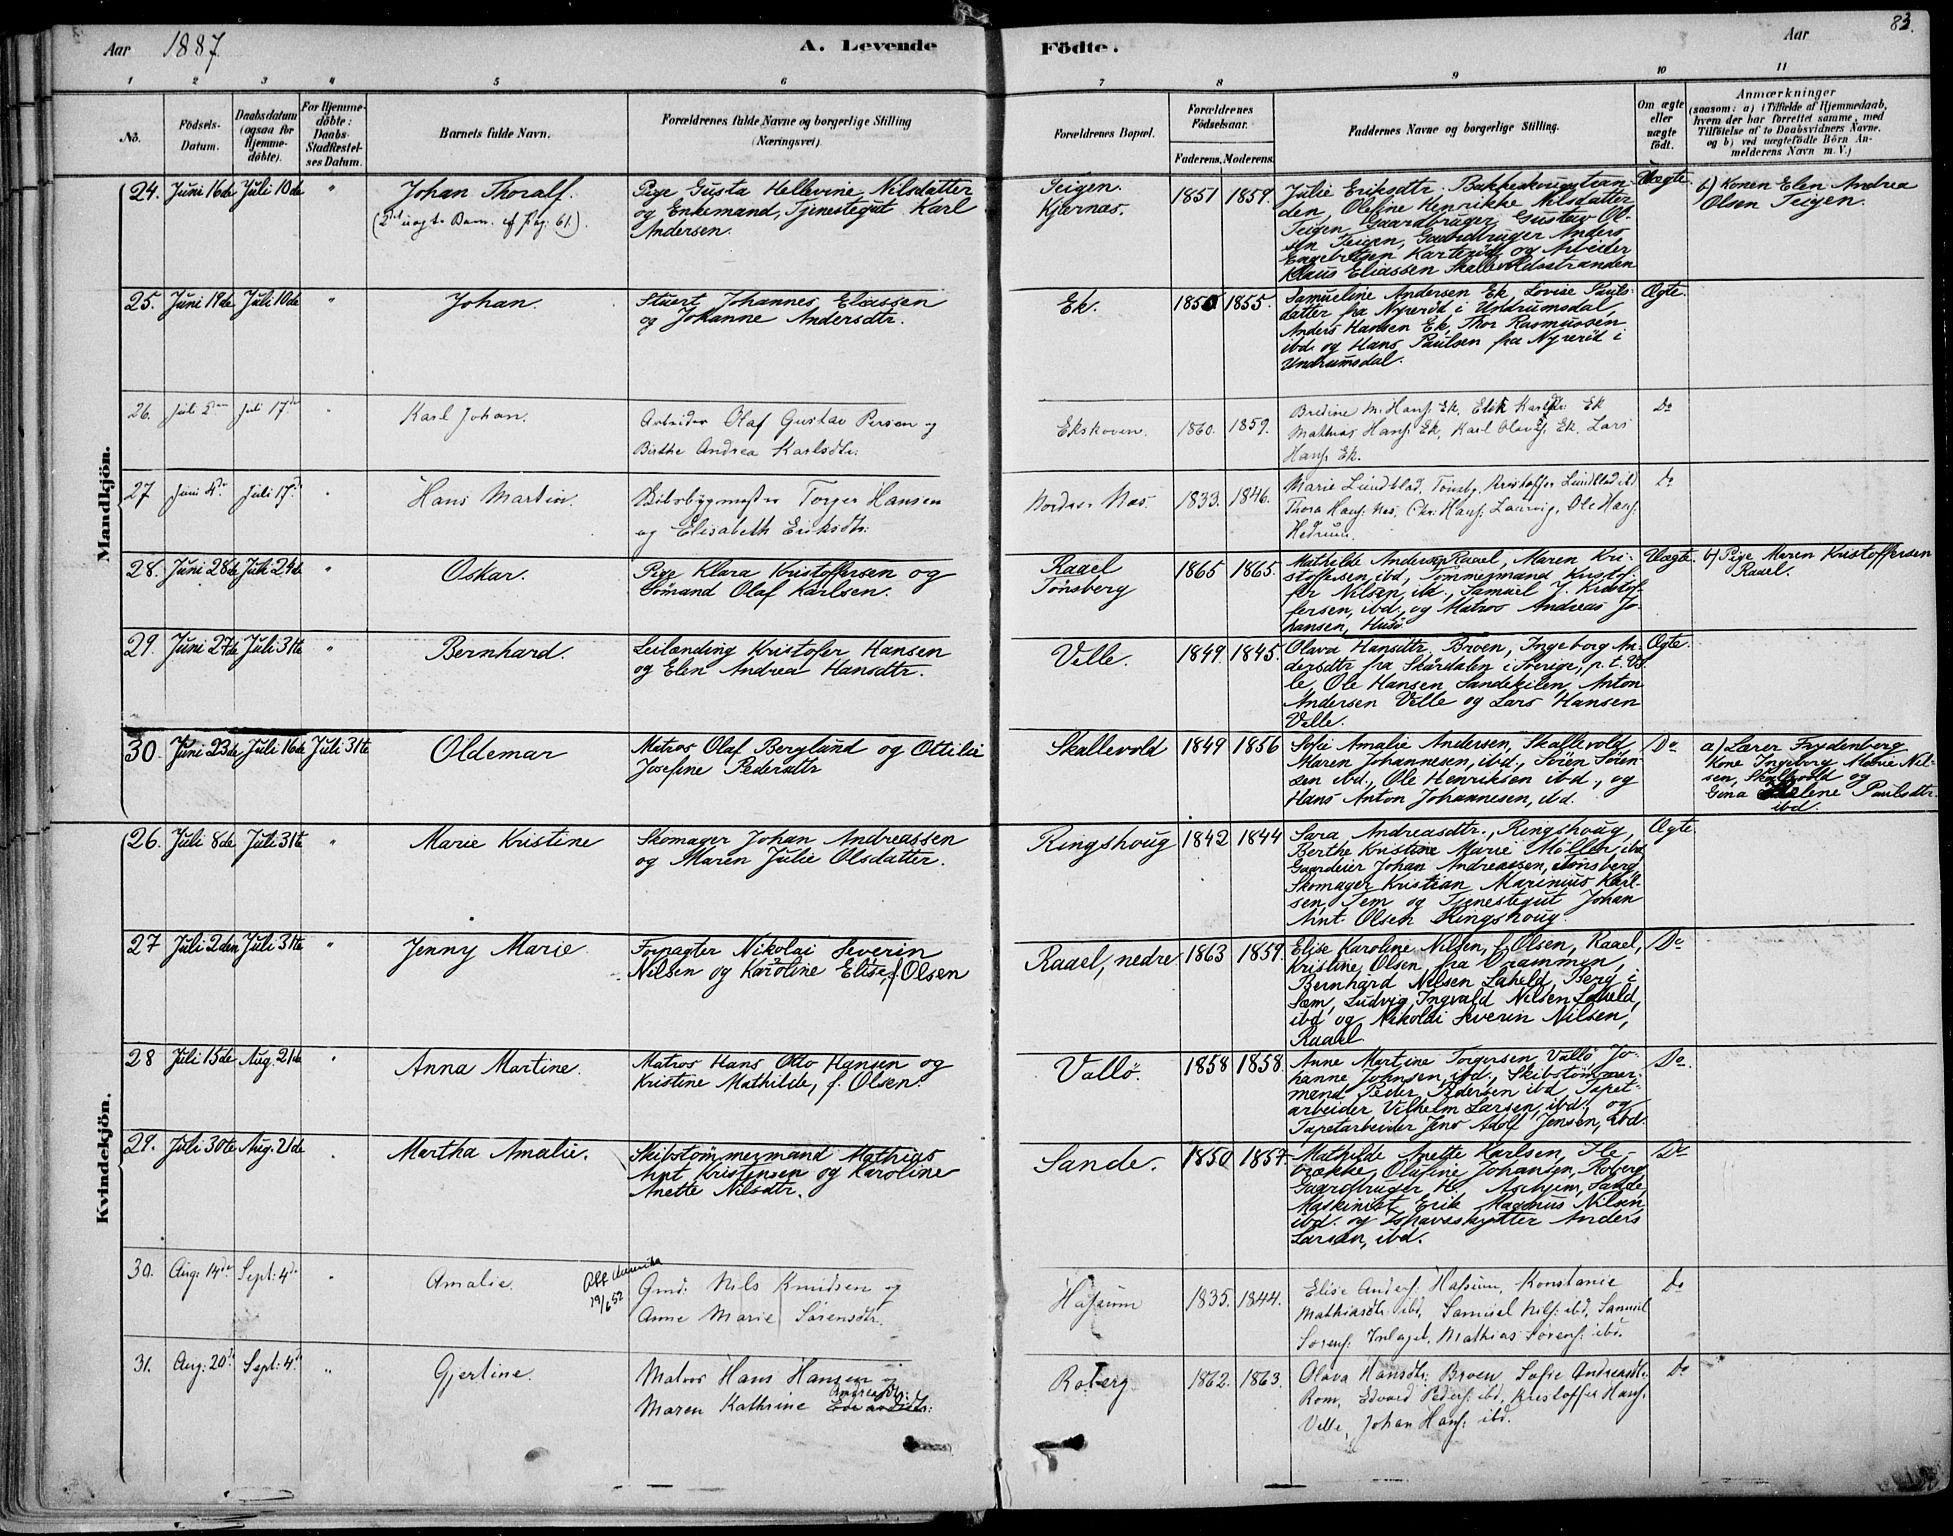 Aar 1887. A. Levende Födte. Aar 83.
1 2 3 4 5 6 7 8 9 10 11
No.
Födsels-Datum.
Daabsdatum (ogsaa for Hjemme-döbte).
For Hjemme-döbte: Daabs-Stadfæstel-ses Datum.
Barnets fulde Navn.
Forældrenes fulde Navne og borgerlige Stilling (Næringsvei).
Forældrenes Bopæl.
Forældrenes Födselsaar.
Faderens. Moderens.
Faddernes Navne og borgerlige Stilling.
Om ægte eller uægte födt.
Anmærkninger
(saasom: a) i Tilfælde af Hjemmedaab,
hvem der har forrettet samme, med
Tilföielse af to Daabsvidners Navne,
og b) ved uægtefödte Börn An-
melderens Navn m. V.)
Mandkjön.
24. Juni 16de Juli 10de " Johan Thoralf.
(2det uægte Barn. cf Pag. 61).
Pige Gusta Hellevine Nilsdatter
og Enkemand, Tjenestegut Karl
Andersen.
Teigen.
Kjernæs.
1851 1859.
Julie Eriksdtr. Bakkeskougstran-
den, Olefine Henrikke Nilsdatter
Teigen, Gaardbruger Gustav Ol-
sen Teigen, Gaardbruger Anders
Engebretsen Karterød og Arbeider
Klaus Eliassen Skallevoldsstranden
Uægte.
b) Konen Elen Andrea
Olsen Teigen.
25. Juni 18de Juli 10de " Johan.
Stuert Johannes Eliassen
og Johanne Andersdtr.
Ek. 1850 1855.
Samueline Andersen Ek, Lovise Pauls-
datter fra Nyrerød i Undrumsdal,
Anders Hansen Ek, Thor Rasmussen
ibd. og Hans Paulsen fra Nyrerød i
Undrumsdal.
Ægte.
26. Juli Juli 17de " Karl Johan.
Arbeider Olaf Gustav Persen og
Birthe Andrea Karlsdtr.
Ekskoven. 1860. 1859.
Bredine M. Hans. Ek, Karlsdtr. Ek
Mathias Hans. Ek, Karl Olavs. Ek, Lars
Hans. Ek.
Do
27 Juni 4de Juli 17de " Hans Martin.
Skibsbygmester Torger Hansen
og Elisabeth Eriksdtr.
Nordre Næs. 1833. 1846.
Marie Lundblad, Tønsbg. Kristoffer Lundblad ibd
Thora Hans. Næs, Chr. Hans. Laurvig, Ole Hans.
Hedrum.
Do
28. Juni 28de Juli 24de " Oskar.
Pige Klara Kristoffersen og
Sömand Olaf Karlsen.
Raael
Tönsberg
1865 1865.
Mathilde Andersen Raael, Maren Kri-
stoffersen ibd, Tömmermand Kristof-
fer Nilsen, ibd., Samuel J. Kristof-
fersen, ibd., og Matros Andreas Jo-
hansen, Husö
Uægte.
b) Pige Maren Kristoffersen
Raael.
29. Juni 27de Juli 31te " Bernhard.
Leilænding Kristofer Hansen
og Elen Andrea Hansdtr.
Velle. 1849. 1845.
Olava Hansdtr. Broen, Ingeborg An-
dersdtr fra Skårdalen i Sverige, p. t. Vel
le, Ole Hansen Sandekilen, Anton
Andersen Velle og Lars Hansen
Velle.
Ægte.
30. Juni 23de Juli 16de Juli 31te Oldemar
Matros Olaf Berglund og Ottilie
Josefine Pedersdtr
Skallevold 1849 1856
Sofie Amalie Andersen, Skallevold,
Maren Johannesen, ibd., Sören Sören-
sen ibd., Ole Henriksen ibd., og
Hans Anton Johannesen, ibd.
Do
a) Lærer Frydenberg
Kone Ingeborg Marie Nil-
sen, Skallevold og
Gina Helene Paulsdtr.
ibd.
Kvindekjön.
26. Juli 8de Juli 31te " Marie Kristine
Skomager Johan Andreassen
og Maren Julie Olsdatter.
Ringshoug 1842 1844
Sara Andreasdtr., Ringshoug,
Berthe Kristine Marie Möller ibd
Gaardeier Johan Andreassen, Tönsberg
Skomager Kristian Marinius Karl-
sen, Sem og Tjenestegut Johan
Arnt Olsen Ringshoug.
Ægte.
27 Juli 2den Juli 31te " Jenny Marie
Forpagter Nikolai Severin
Nilsen og Karoline Elise, f. Olsen
Raael, nedre 1863 1859.
Elise Karoline Nilsen, f. Olsen, Raael,
Kristine Olsen fra Drammen,
Bernhard Nilsen Laheld, Berg i
Sem, Ludvig Ingvald Nilsen Laheld,
ibd og Nikolai Severin Nilsen,
Raael
Do
28 Juli 15de Aug. 21de " Anna Martine.
Matros Hans Otto Hansen og
Kristine Mathilde, f. Olsen.
Vallö. 1858 1858.
Anne Martine Torgersen, Vallö, Jo-
hanne Johnsen, ibd., Skibstömmer-
mand Peder Pedersen ibd., Tapet-
arbeider Vilhelm Larsen, ibd., og
Tapetarbeider Jens Adolf Jensen, ibd.
Do.
29. Juli 30te Aug. 21de . Martha Amalie.
Skibstömmermand Mathias
Arnt Kristensen og Karoline
Anette Nilsdtr.
Sande. 1850 1857.
Mathilde Anette Karlsen, Ile-
brække, Olufine Johansen, Roberg,
Gaardbruger H. Askjem, Sande,
Maskinist Erik Magnus Nilsen
ibd. og Ishavsskytter Anders
Larsen, ibd.
Do
30. Aug. 14de Sept. 4de " Amalie.
Att Amerika
19/6 52
Gmd. Nils Knudsen og
Anne Marie Sørensdtr.
Hassum 1835. 1844.
Elise Anders. Hassum, Konstanie
Mathiasdtr. ibd, Samuel Nils. ibd, Samuel
Sørens. Inlaget, Mathias Sørens. ibd.
Do
31. Aug. 20de Sept. 4de " Gjertine.
Matros Hans Hansen og
Maren Kathrine Andreasdtr.
Roberg 1862. 1863.
Olava Hansdtr. Broen, Sofie Andreasdtr.
Rom, Edvard Peders. ibd, Kristoffer Hans.
Velle, Johan Hans. ibd.
Do